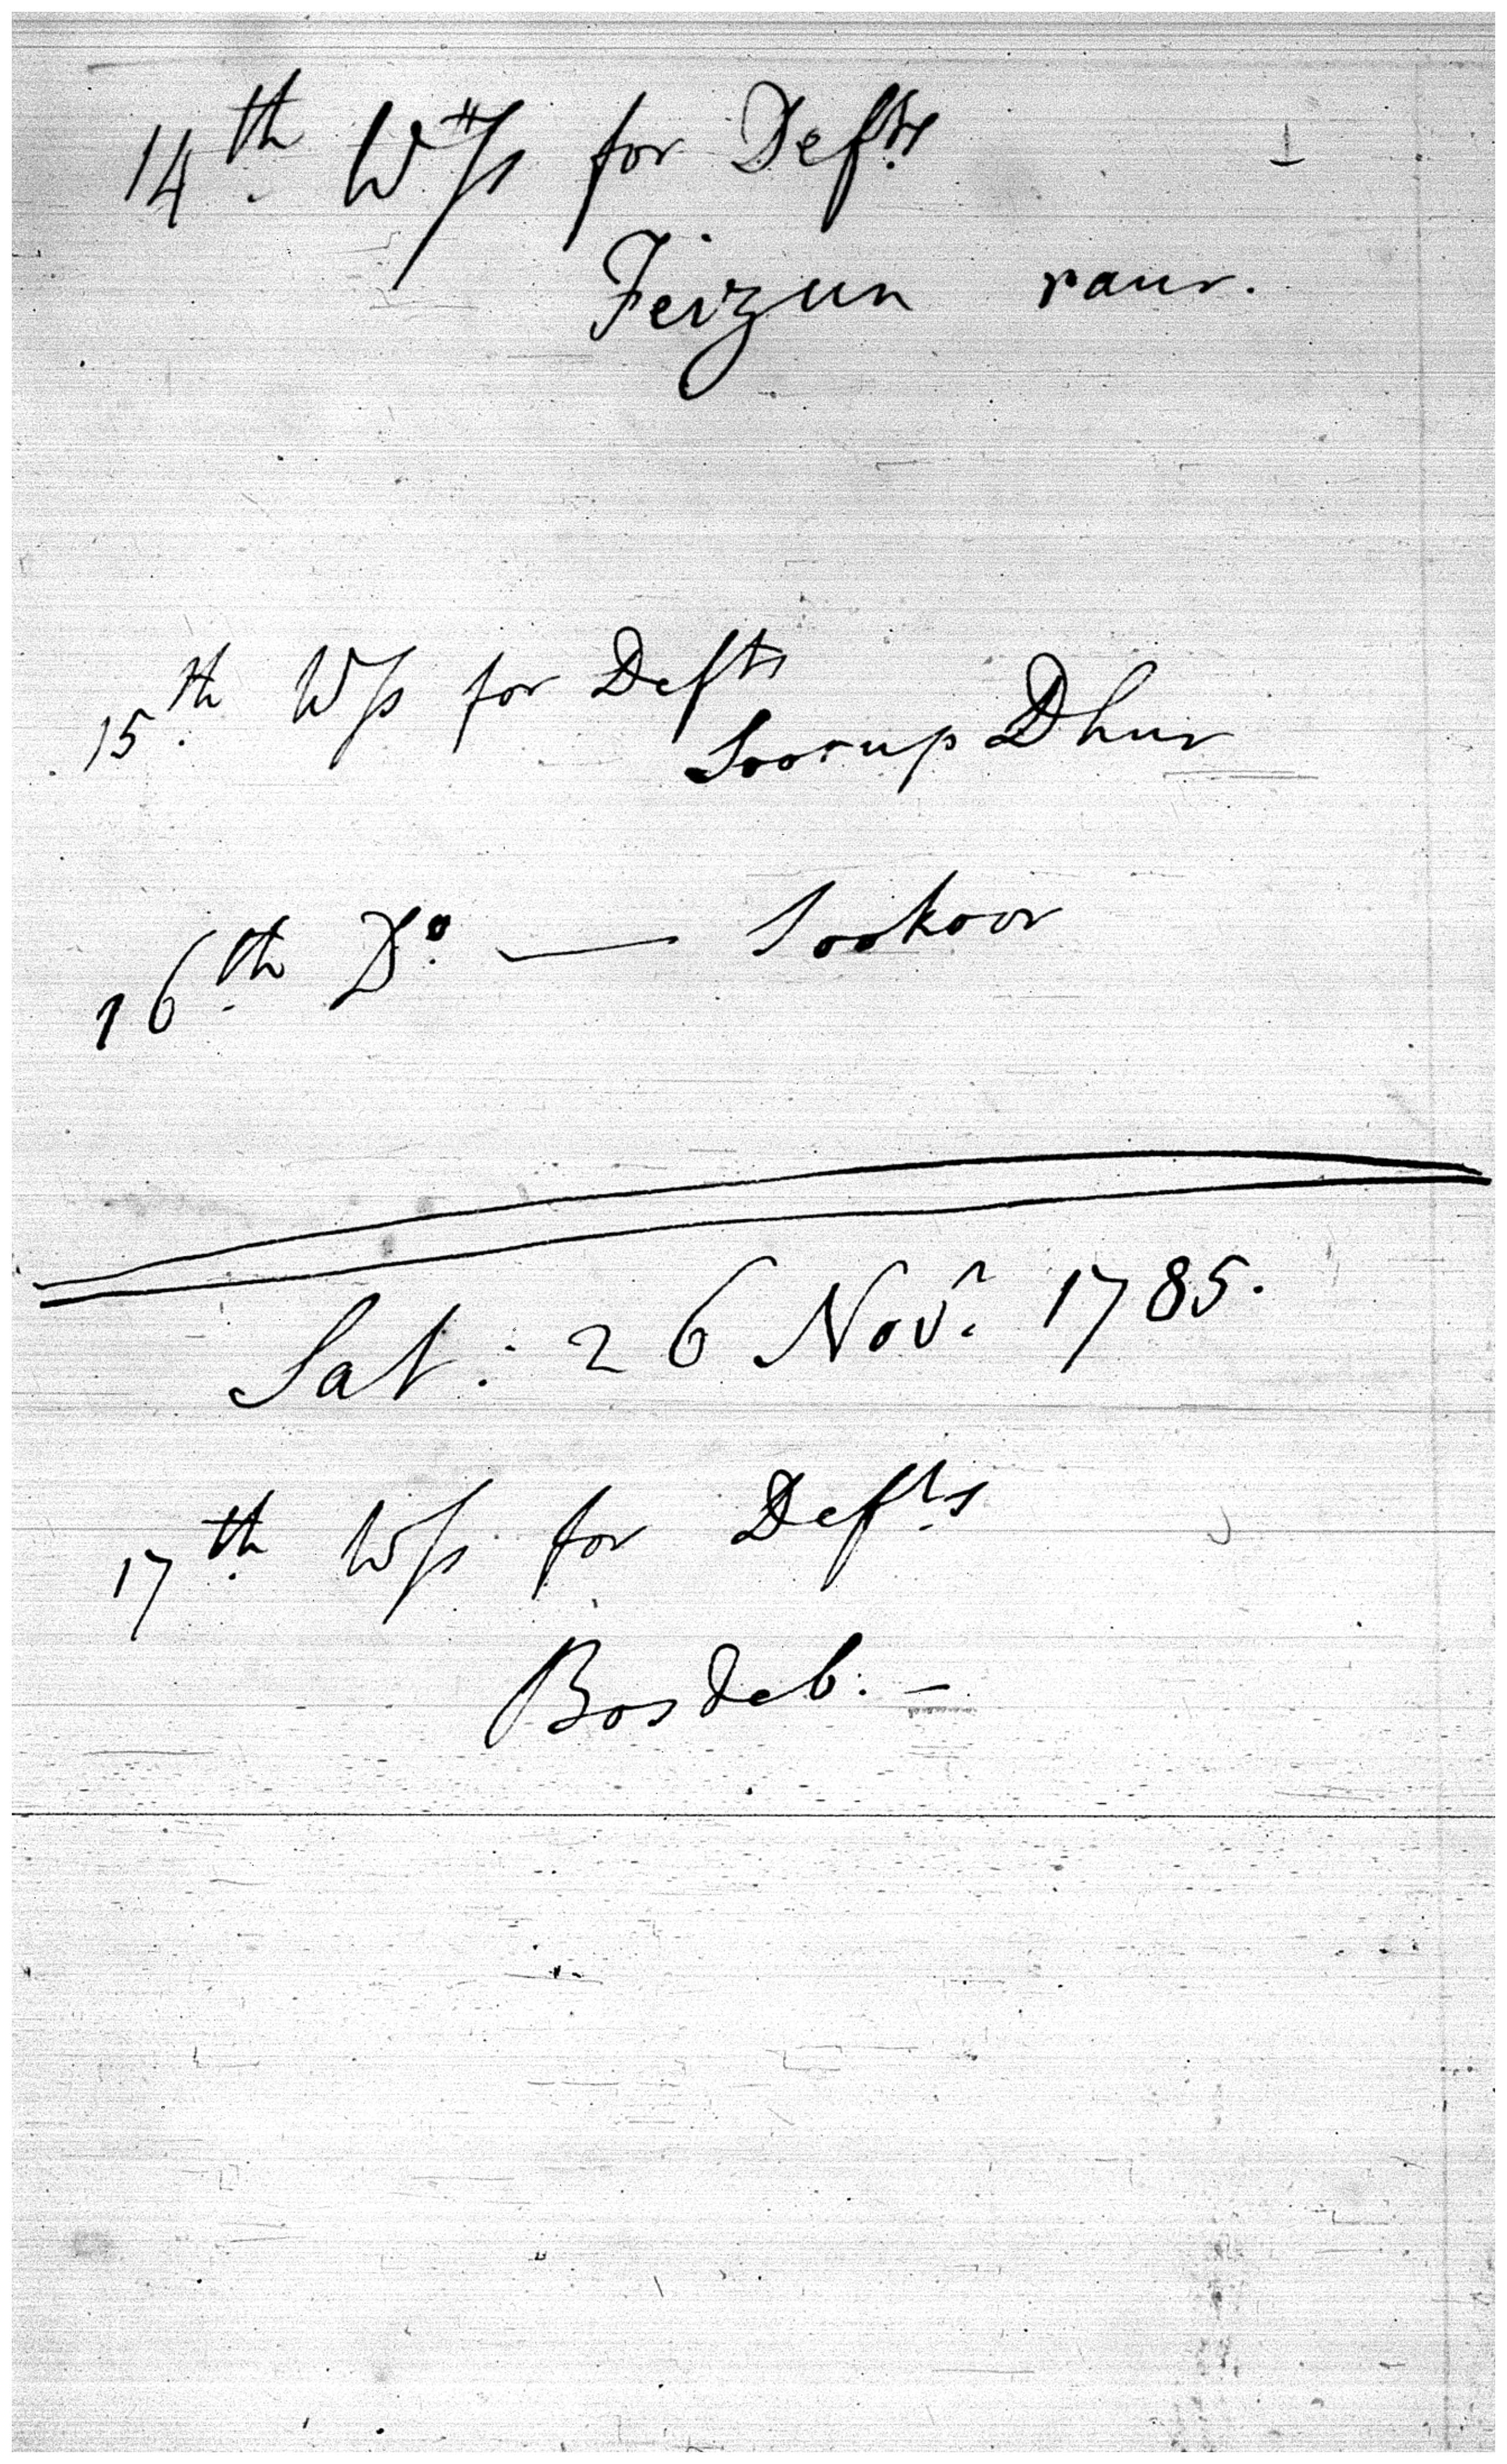 14th Wss for Defts
Feizun raur.
15th Wss for Defts
Soorup Dhur
16th Do — Sookoor
Sat: 26 Novr 1785.
17th Wss for Defts
Bosdeb. –